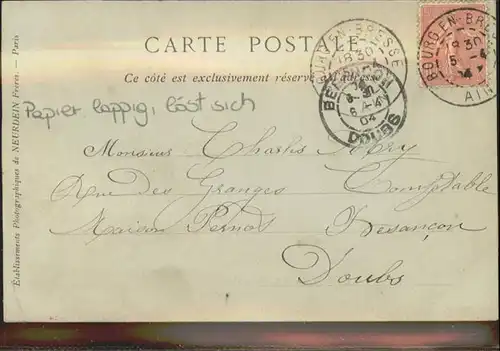 CARTE POSTALE
Ce côté est exclusivement réservé à l'adresse
BOURG-EN-BRESSE
18 30
5 -4
AIN
BOURG-EN-BRESSE
18 30
BESANÇON
6 -4
04
DOUBS
Papier lappig, löst sich
Monsieur Charles
Rue des Granges Comptable
Maison Pernot Besançon
Doubs
Établissements Photographiques de NEURDEIN Frères. - Paris